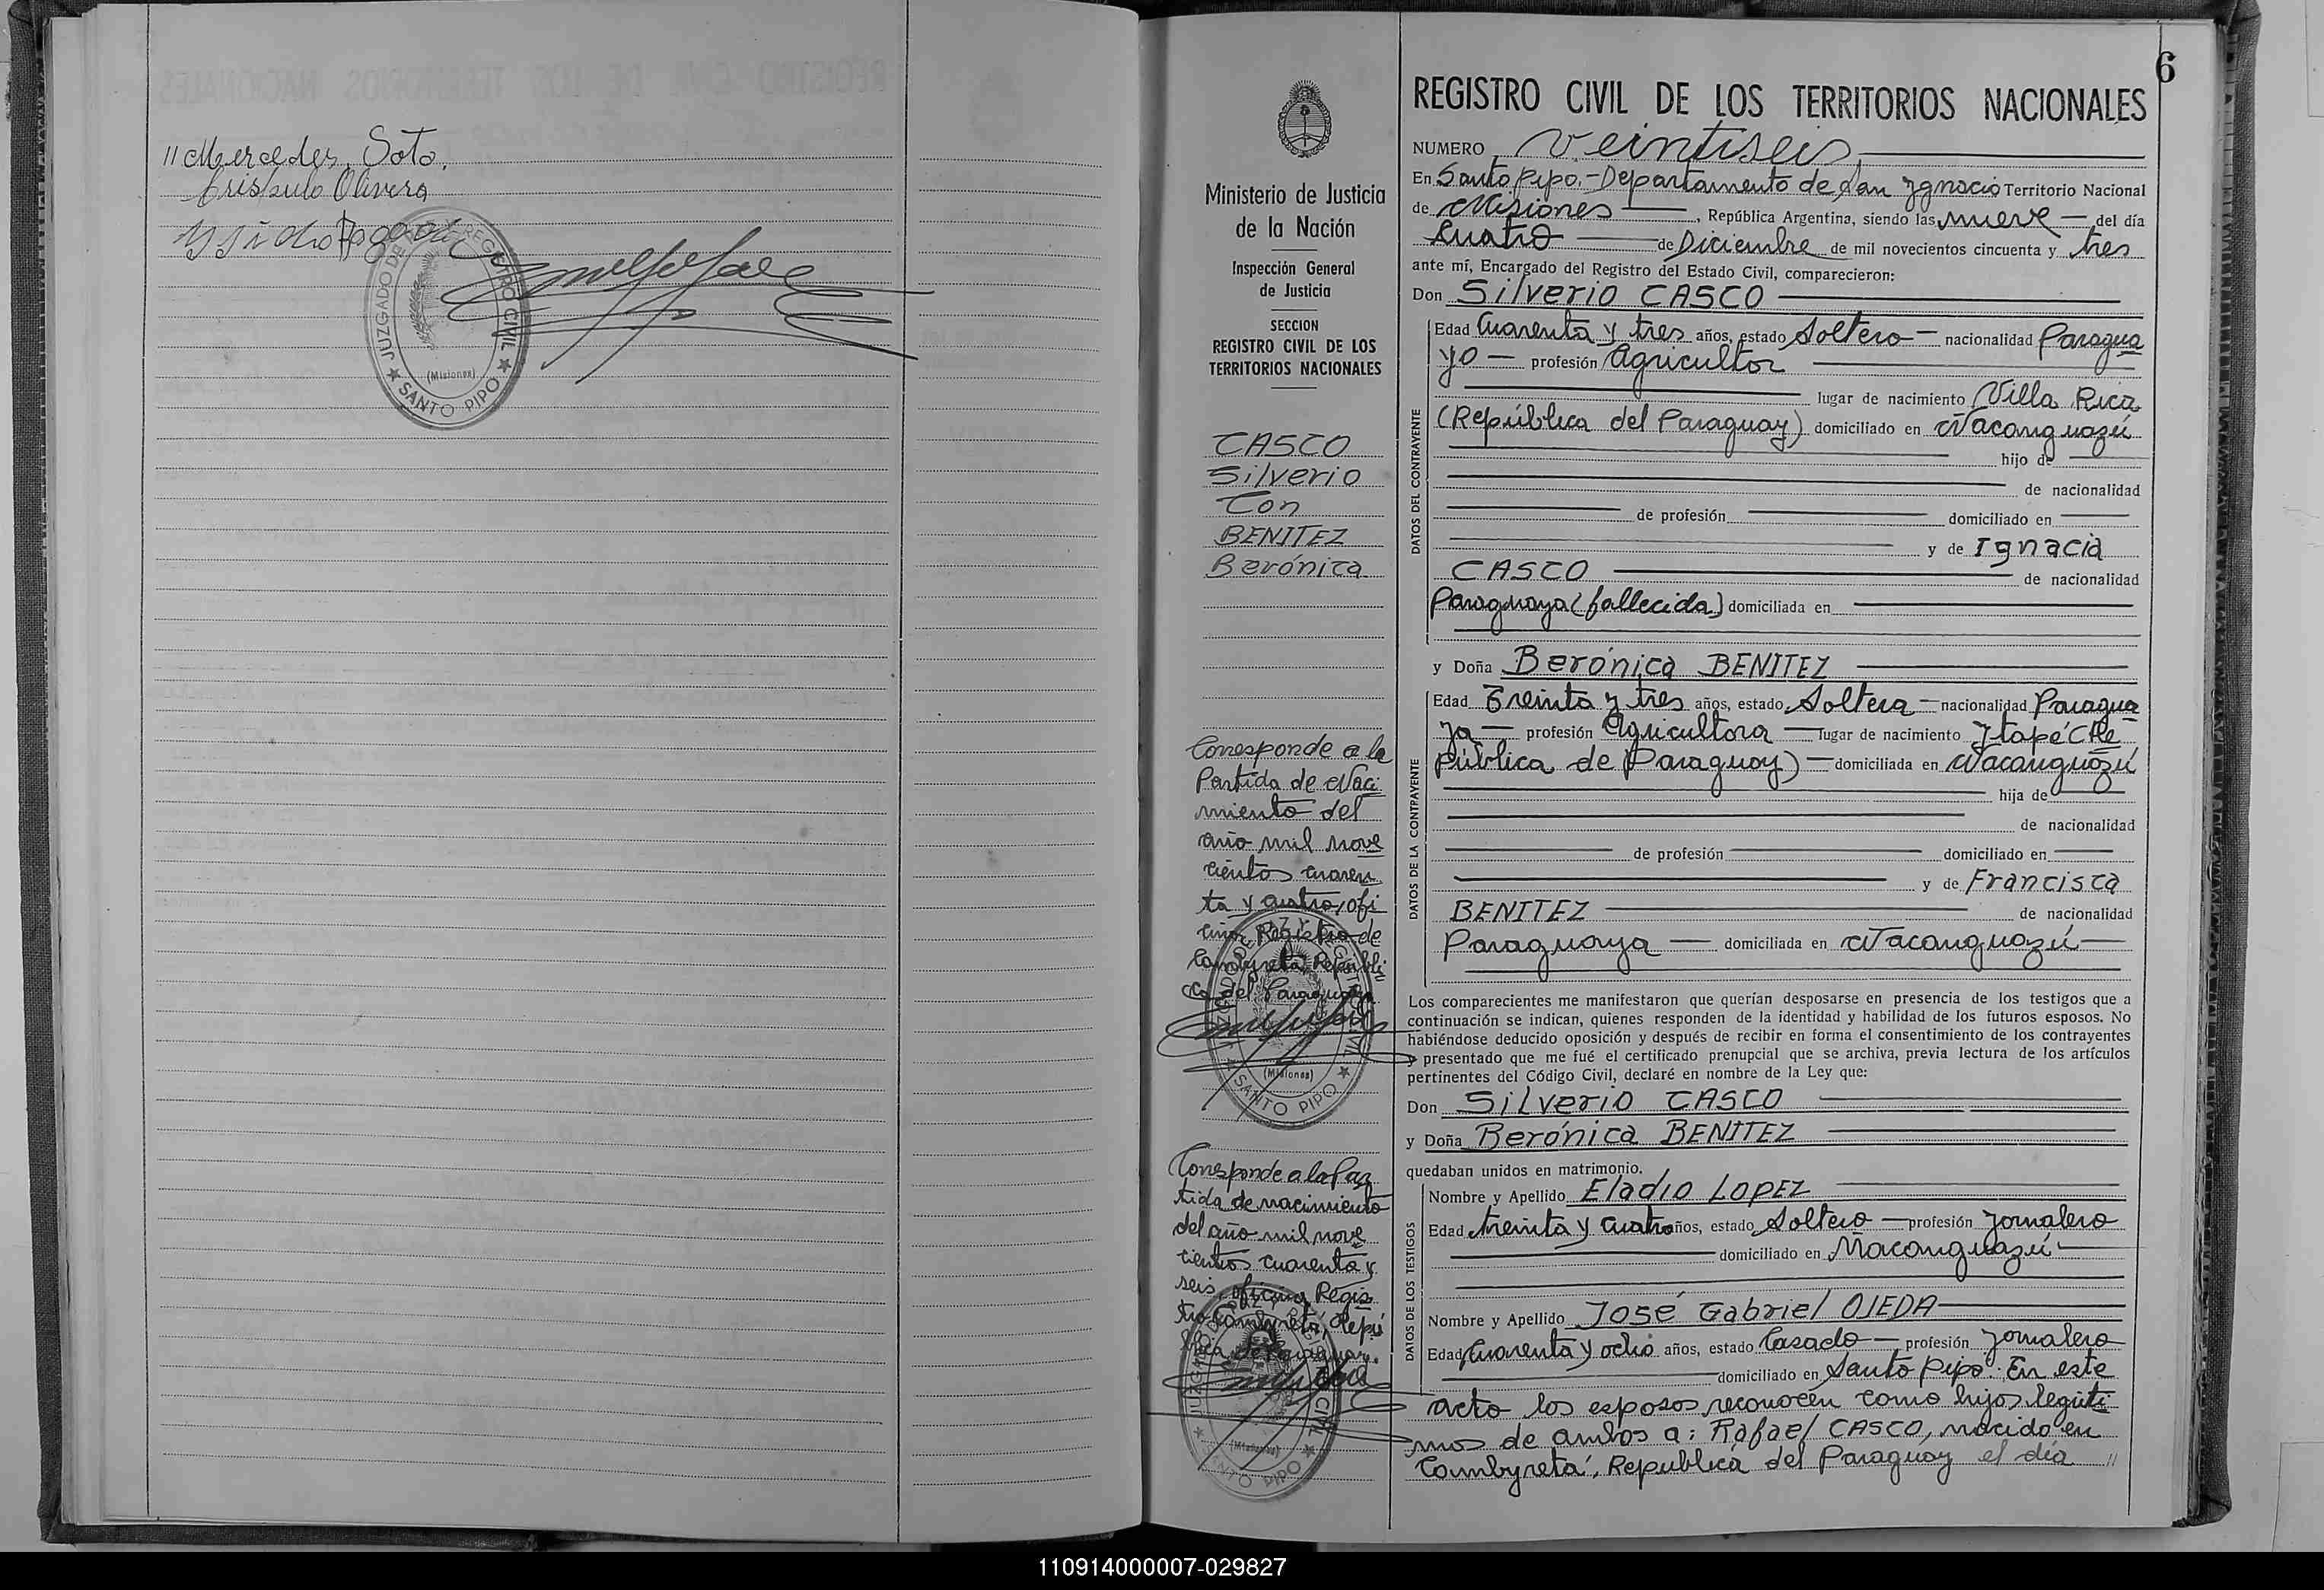 // Mercedes Soto.
Crispulo Olivera
JUZGADO DE PAZ Y REGISTRO CIVIL
(Misiones)
★ SANTO PIPO ★
6
REGISTRO CIVIL DE LOS TERRITORIOS NACIONALES
NUMERO Veintiseis
En Santo Pipo.- Departamento de San Ygnacio Territorio Nacional
de Misiones, República Argentina, siendo las nueve del día
Cuatro de Diciembre de mil novecientos cincuenta y tres
ante mí, Encargado del Registro del Estado Civil, comparecieron:
Don Silverio CASCO
DATOS DEL CONTRAYENTE
Edad Cuarenta y tres años, estado Soltero nacionalidad Paragua
yo profesión Agricultor
lugar de nacimiento Villa Rica
(República del Paraguay) domiciliado en Ñacanguazú
hijo de
de nacionalidad
de profesión domiciliado en
y de Ignacia
CASCO de nacionalidad
Paraguaya (fallecida) domiciliada en
y Doña Berónica BENITEZ
DATOS DE LA CONTRAYENTE
Edad Treinta y tres años, estado Soltera nacionalidad Paragua
ya profesión Agricultora lugar de nacimiento Ytapé (Re
pública de Paraguay) domiciliada en Ñacanguazú
hija de
de nacionalidad
de profesión domiciliado en
y de Francisca
BENITEZ de nacionalidad
Paraguaya domiciliada en Ñacanguazú
Los comparecientes me manifestaron que querían desposarse en presencia de los testigos que a
continuación se indican, quienes responden de la identidad y habilidad de los futuros esposos. No
habiéndose deducido oposición y después de recibir en forma el consentimiento de los contrayentes
y presentado que me fué el certificado prenupcial que se archiva, previa lectura de los artículos
pertinentes del Código Civil, declaré en nombre de la Ley que:
Don Silverio CASCO
y Doña Berónica BENITEZ
quedaban unidos en matrimonio.
DATOS DE LOS TESTIGOS
Nombre y Apellido Eladio LOPEZ
Edad treinta y cuatro años, estado Soltero profesión Jornalero
domiciliado en Ñacanguazú
Nombre y Apellido José Gabriel OJEDA
Edad Cuarenta y ocho años, estado Casado profesión Jornalero
domiciliado en Santo Pipo. En este
acto los esposos reconocen como hijos legiti
mos de ambos a: Rafael CASCO, nacido en
Cambyretá, Republica del Paraguay el día //
Ministerio de Justicia
de la Nación
Inspección General
de Justicia
SECCION
REGISTRO CIVIL DE LOS
TERRITORIOS NACIONALES
CASCO
Silverio
Con
BENITEZ
Berónica
Corresponde a la
Partida de Naci
miento del
año mil nove
cientos cuaren
ta y cuatro, ofi
cina Registro de
Cambyretá, Repúbli
ca del Paraguay.
(Misiones)
★ SANTO PIPO ★
Corresponde a la Par
tida de nacimiento
del año mil nove
cientos cuarenta y
seis, oficina Regis
tro Cambyretá, Repú
blica del Paraguay.
(Misiones)
★ SANTO PIPO ★
110914000007-029827